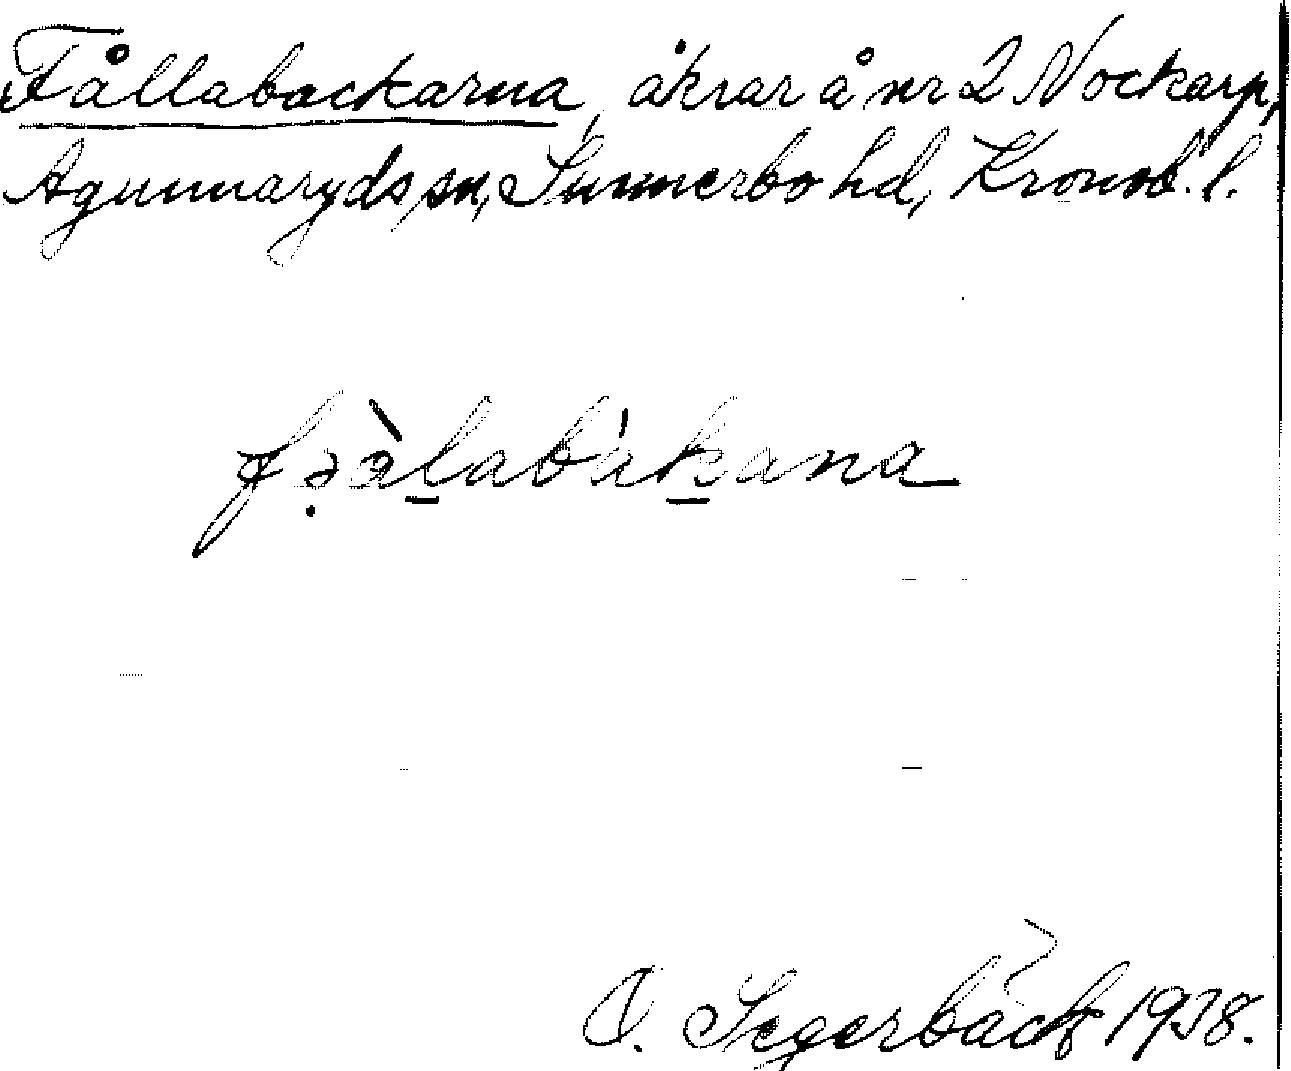 Fållabackarna, åkrar å nr 2 Nockarp,
Agunnaryds sn, Sunnerbo hd, Kronob. l.
O. Segerbäck 1938.